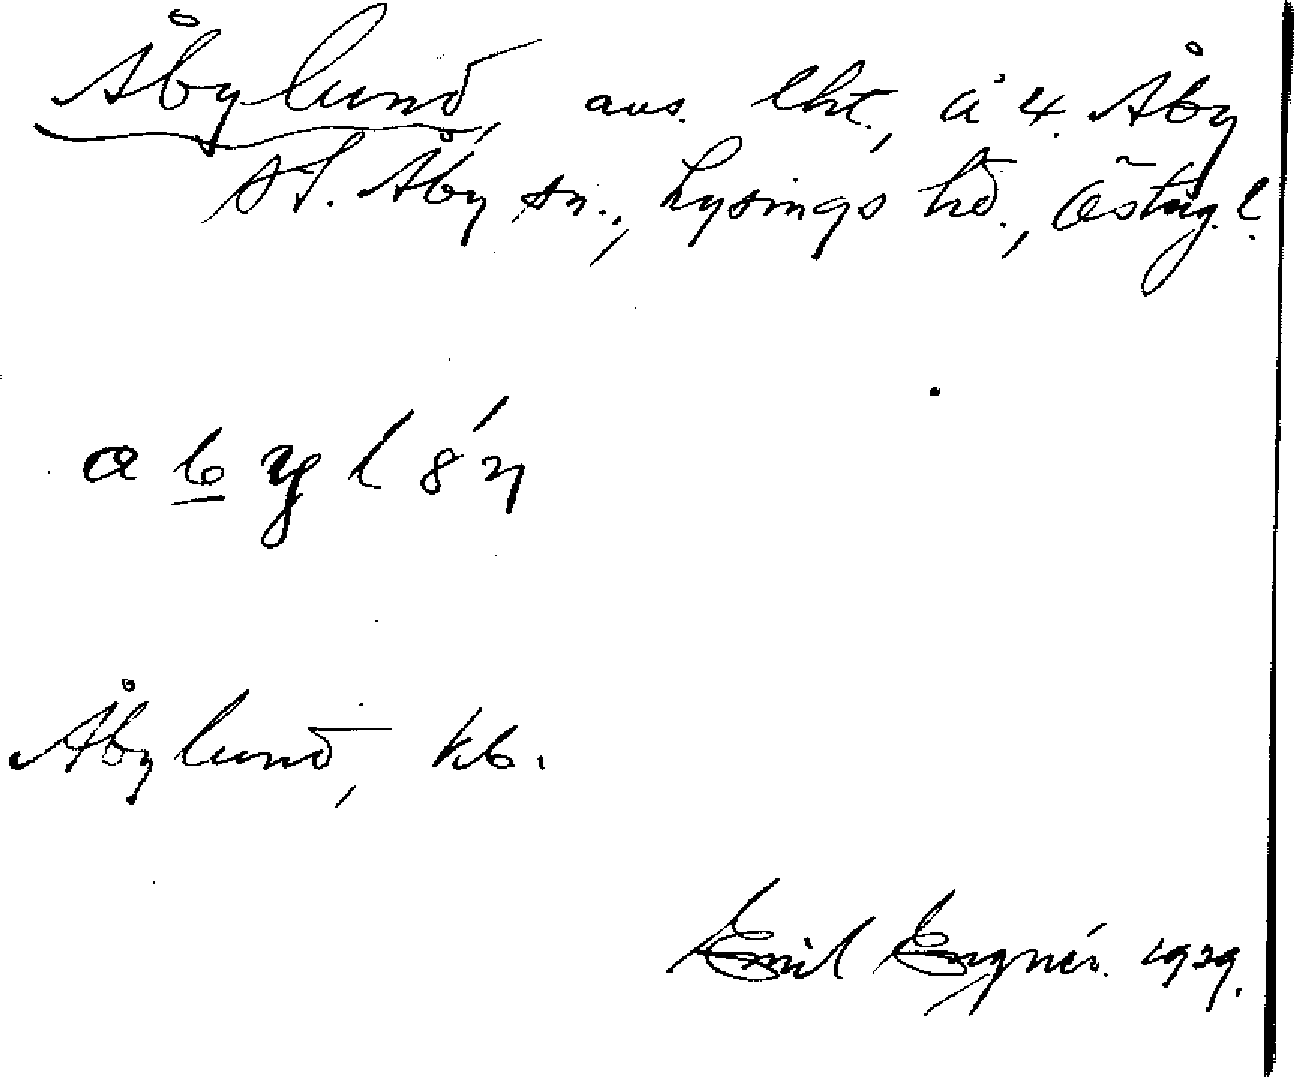 Åbylund, avs. lht., å 4. Åby
St. Åby sn., Lysings hd., Österg.l.
Åbylund, kb.
Emil Engnér. 1929.